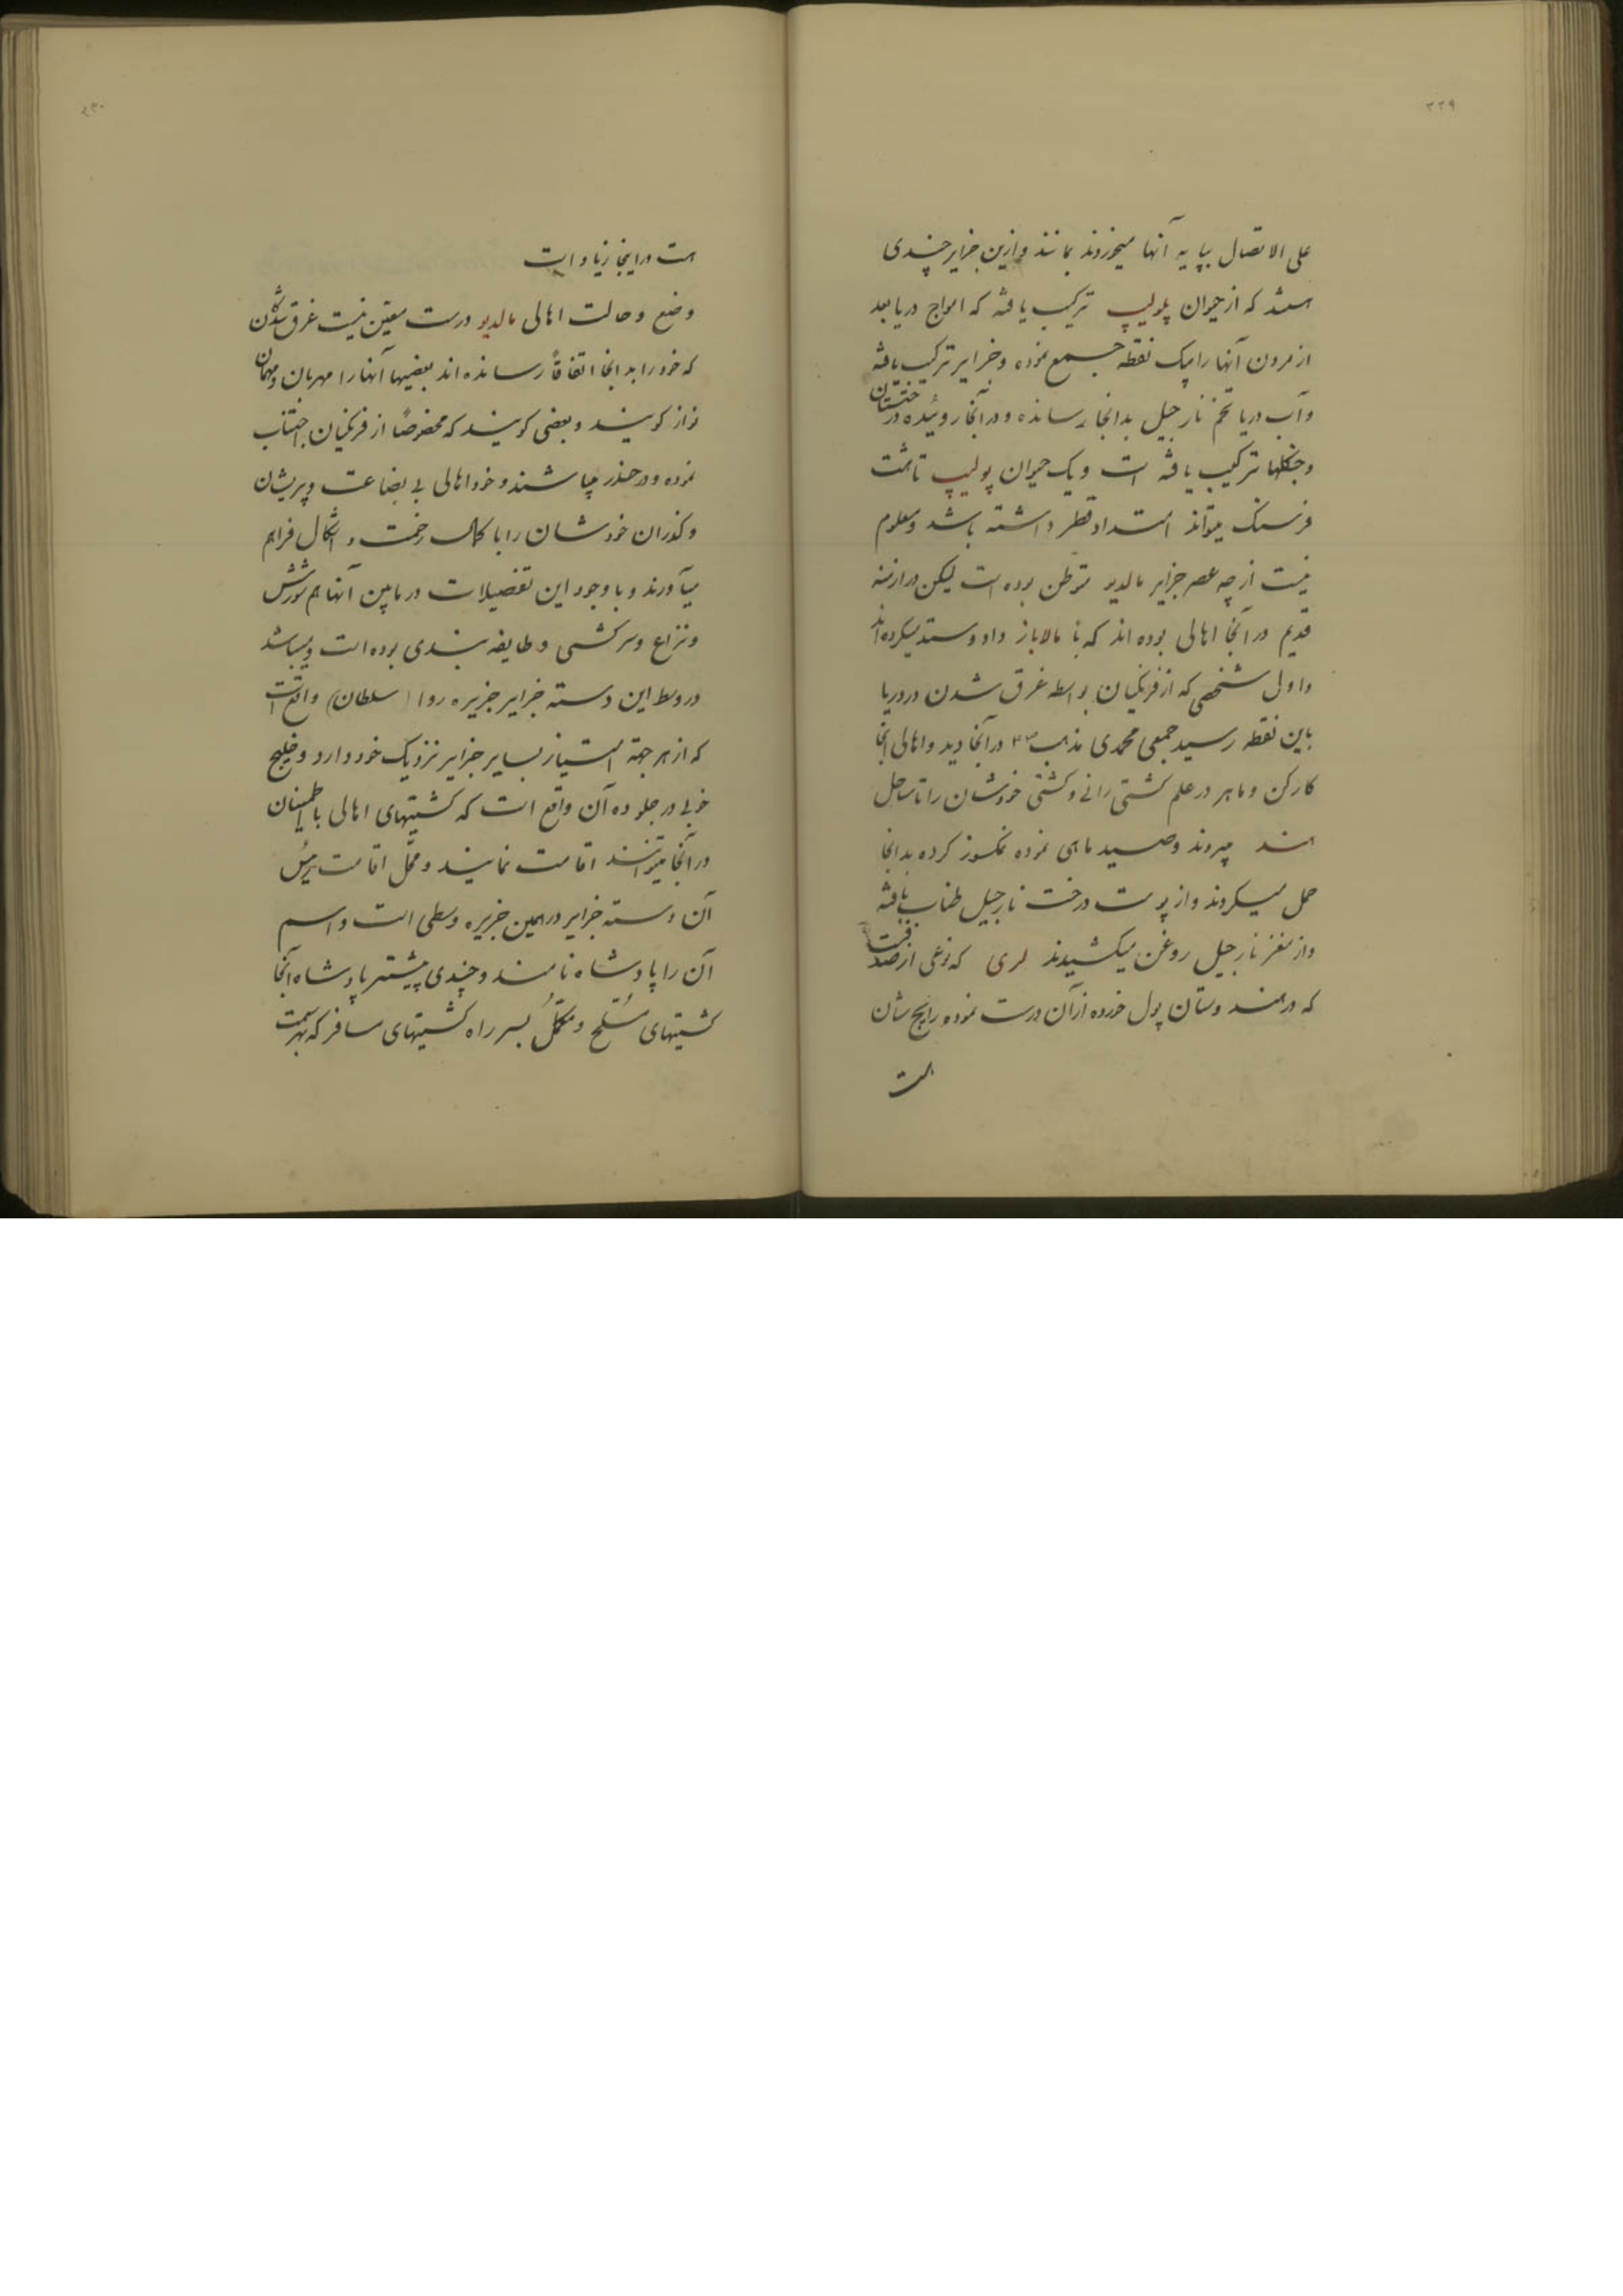 ۲۲۹
علی الاتصال بپایه آنها میخورند بمانند و ازین جزایر چندی
هستند که از حیوان پلولیپ ترکیب یافته که امواج دریا بعد
از مردن آنها را بیک نقطه جمع نموده و جزایر ترکیب یافته
و آب دریا تخم نارجیل بدانجا رسانده و در آنجا روئیده درختستان
و جنگلها ترکیب یافته است و یک حیوان پولیپ تا هشت
فرسنگ میتواند امتداد قطر داشته باشد و معلوم
نیست از چه عصر جزایر مالدیو متوطن بوده است لیکن در ازمنه
قدیم در آنجا اهالی بوده اند که با مالابار داد و ستد میکرده اند
و اول شخصی که از فرنگیان بواسطه غرق شدن در دریا
باین نقطه رسید جمعی محمدی مذهب در آنجا دید و اهالی آنجا
کارکن و ماهر در علم کشتی رانی و کشتی خودشان را تا ساحل
هند میروند و صید ماهی نموده نمکسوز کرده بدانجا
حمل میکردند و از پوست درخت نارجیل طناب بافته
و از مغز نارجیل روغن میکشیدند لری که نوعی از صدف است
که در هندوستان پول خورده از آن درست نموده رایج شان
هست
۲۳۰
هست در اینجا زیاد است
وضع و حالت اهالی مالدیو درست معین نیست غرق شدگان
که خود را بدانجا اتفاقاً رسانده اند بعضیها آنها را مهربان و مهمان
نواز گویند و بعضی گویند که مخصوصاً از فرنگیان اجتناب
نموده و در حذر میباشند و خود اهالی بی بضاعت و پریشان
و گذران خودشان را با کمال زحمت و اشکال فراهم
میآورند و با وجود این تفضیلات در مابین آنها هم شورش
و نزاع و سرکشی و طایفه بندی بوده است و میباشد
در وسط این دسته جزایر جزیره روا (سلطان) واقع است
که از هر جهة امتیاز بسایر جزایر نزدیک خود دارد و خلیج
خوبی در جلو ده آن واقع است که کشتیهای اهالی با اطمینان
در آنجا میتوانند اقامت نمایند و محل اقامت رئیس
آن دسته جزایر در همین جزیره وسطی است و اسم
آن را پادشاه نامند و چندی پیشتر پادشاه آنجا
کشتیهای مسلح و مکمل بسر راه کشتیهای مسافر که بهر سمت